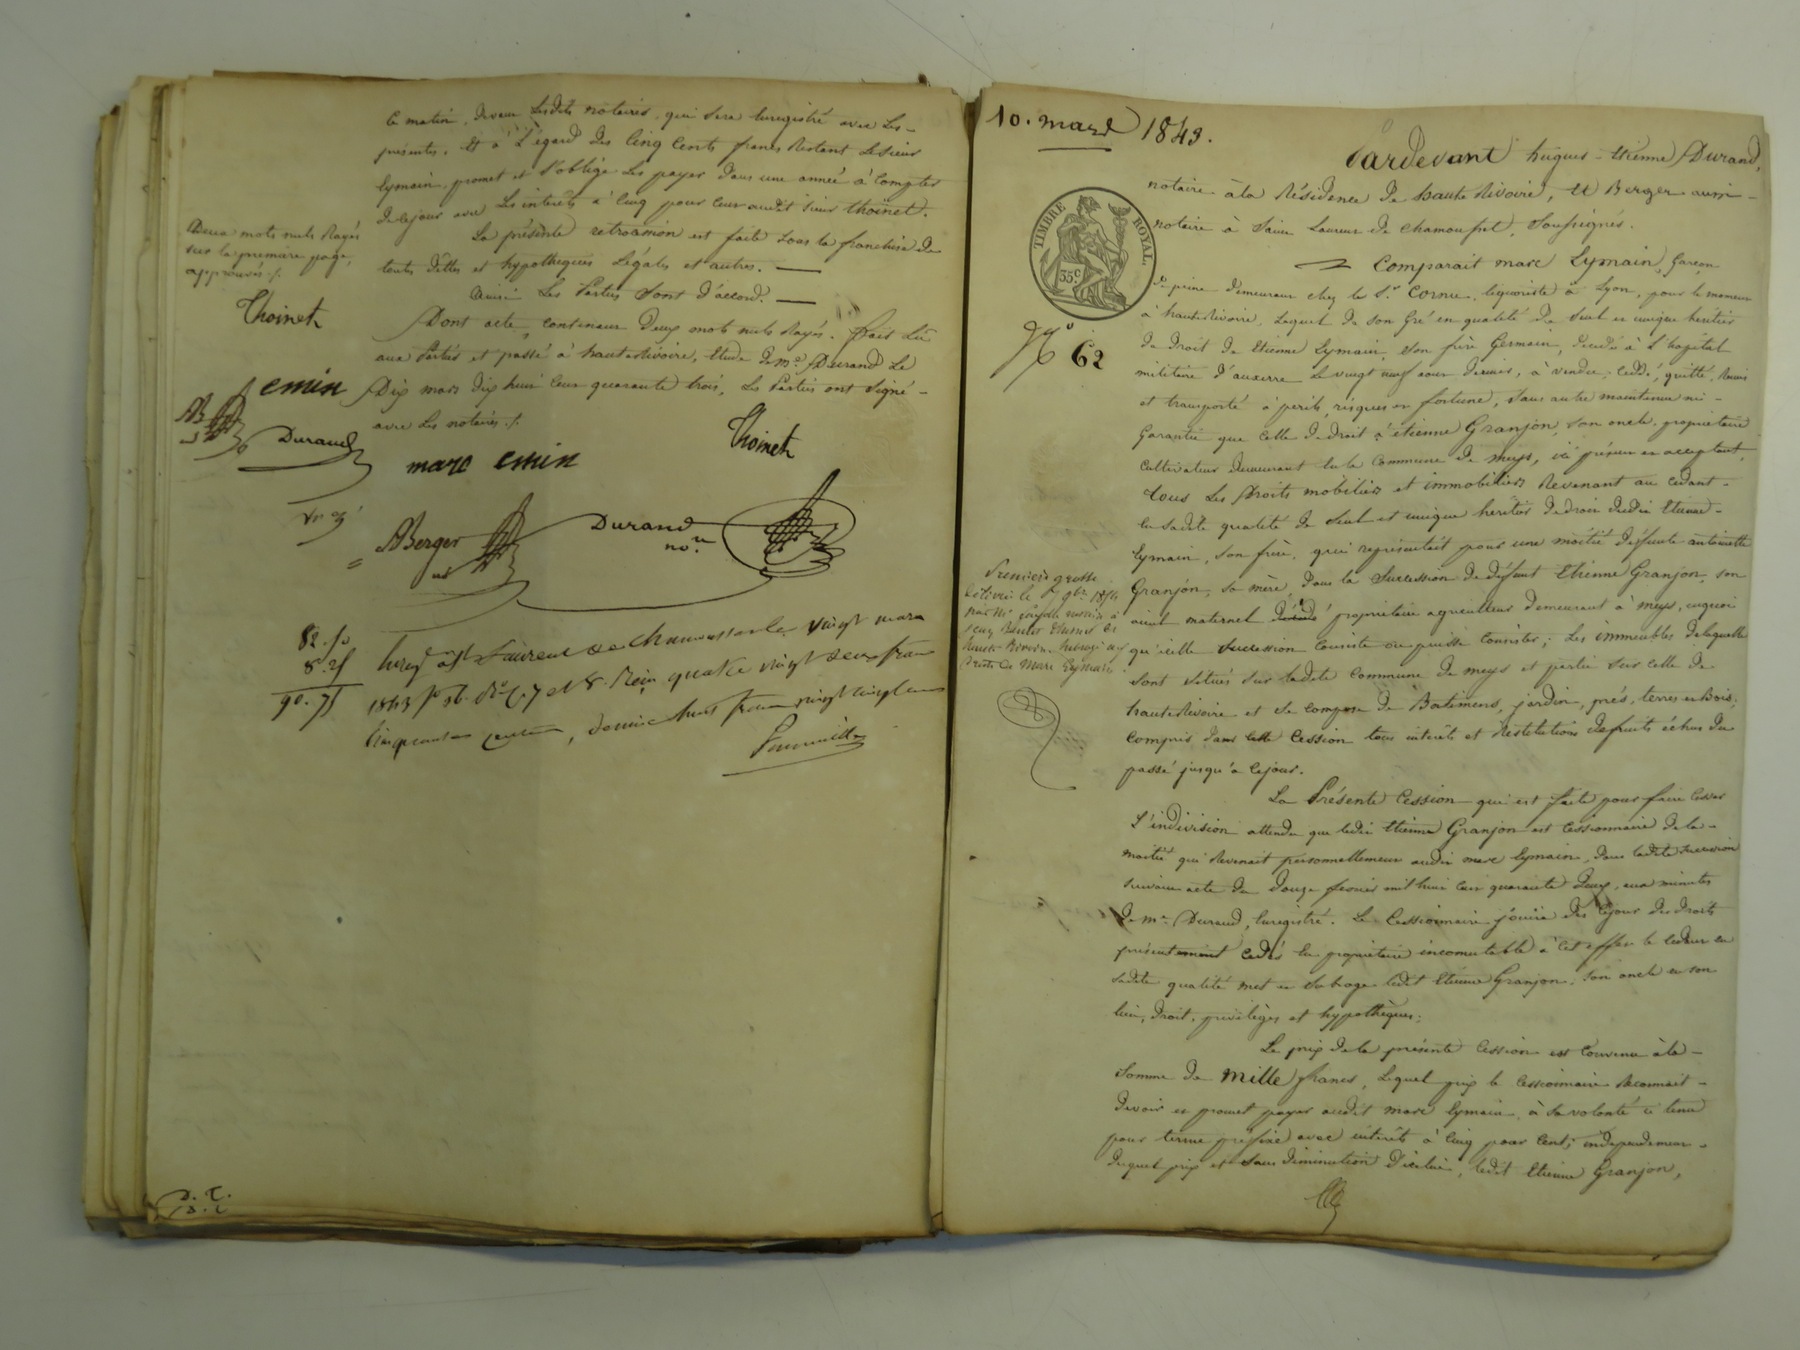 ce matin, devant lesdits notaires, qui sera enregistré avec les
présentes. Et à l'égard des cinq cents francs restant le sieur
Eymain, promet et s'oblige les payer dans une année à compter
de ce jour avec les intérêts à cinq pour cent audit sieur Thoinet.
La présente rétrocession est faite sous la franchise de
toutes dettes et hypothèques légales et autres.
Ainsi les parties sont d'accord.
Dont acte, contenant deux mots nuls rayés. fait lu
aux parties et passé à hauterivoire, étude de me. Durand le
Dix mars dix huit cent quarante trois, les parties ont signé
avec les notaires ./.
Deux mots nuls rayés
sur la première page,
approuvés ./.
Thoinet
emin
AB
Durand
marc emin
Thoinet
ABerger
Durand
nore
82.50
8.25
90.75
Enregé à St Laurent de Chamousset le vingt mars
1843 fo 56. Ro C. 7 et 8. Reçu quatre vingt deux francs
cinquante centimes, décime huit francs vingt cinq centimes
D. T.
D. L
10. mars 1843.
TIMBRE ROYAL.
35c
No 62
Pardevant hugues-Etienne Durand,
notaire à la Résidence de haute Rivoire, et Berger aussi
notaire à Saint Laurent de Chamousset, soussignés.
Comparait marc Eymain, garçon
de peine demeurant chez le Sr. Cornu, liquoriste à Lyon, pour le moment
à hauterivoire, lequel de son gré en qualité de seul et unique héritier
de droit de Etienne Eymain, son frère germain, décédé à l'hopital
militaire d'auxerre le vingt neuf aout dernier, a vendu, cédé, quitté, remis
et transporté à périls, risques et fortune, sans autre maintenue ni
garantie que celle de droit à étienne Granjon, son oncle, propriétaire
cultivateur demeurant en la Commune de meys, ici présent et acceptant,
tous les droits mobiliers et immobiliers revenant au cédant
en sadite qualité de seul et unique héritier de droit dudit Etienne
Eymain, son frère, qui représentait pour une moitié défunte antoinette
Granjon, sa mère, dans la succession de défunt Etienne Granjon, son
aieul maternel décédé propriétaire agriculteur demeurant à meys, en quoi
qu'icelle succession consiste ou puisse consister; les immeubles de laquelle
sont situés sur ladite commune de meys et partie sur celle de
hauterivoire et se compose de Batimens, jardin, prés, terres et Bois,
compris dans cette cession tous intérêts et restitutions de fruits échus du
passé jusqu'à ce jour.
Première grosse
délivrée le 9bre 1874
La Présente cession qui est faite pour faire cesser
l'indivision attendu que ledit Etienne Granjon est cessionnaire de la
moitié qui revenait personnellement audit marc Eymain, dans ladite succession
suivant acte du douze février mil huit cent quarante deux, aux minutes
de me. Durand, enregistré. Le cessionnaire jouira dès ce jour des droits
présentement cédés en propriétaire incomutable à cet effet le cédant en
sadite qualité met et subroge ledit Etienne Granjon, son oncle en son
lieu, droit, privilèges et hypothèques;
Le prix de la présente cession est convenu à la
somme de mille francs, lequel prix le cessionnaire reconnait
devoir et promet payer audit marc Eymain, à sa volonté ce tenu
pour terme préfixe avec intérêts à cinq pour cent; indépendament
duquel prix et sans diminution d'icelui, ledit Etienne Granjon,